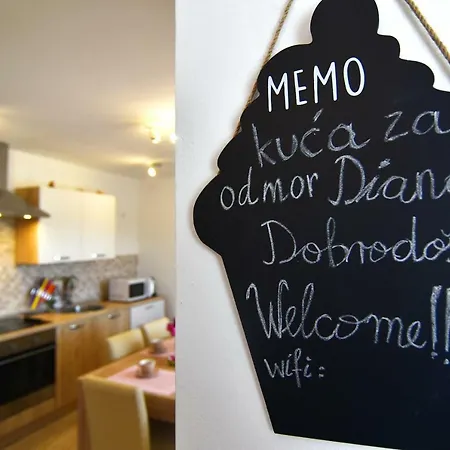 MEMO
kuća za
odmor Diana
Dobrodoš
Welcome!!
wifi: